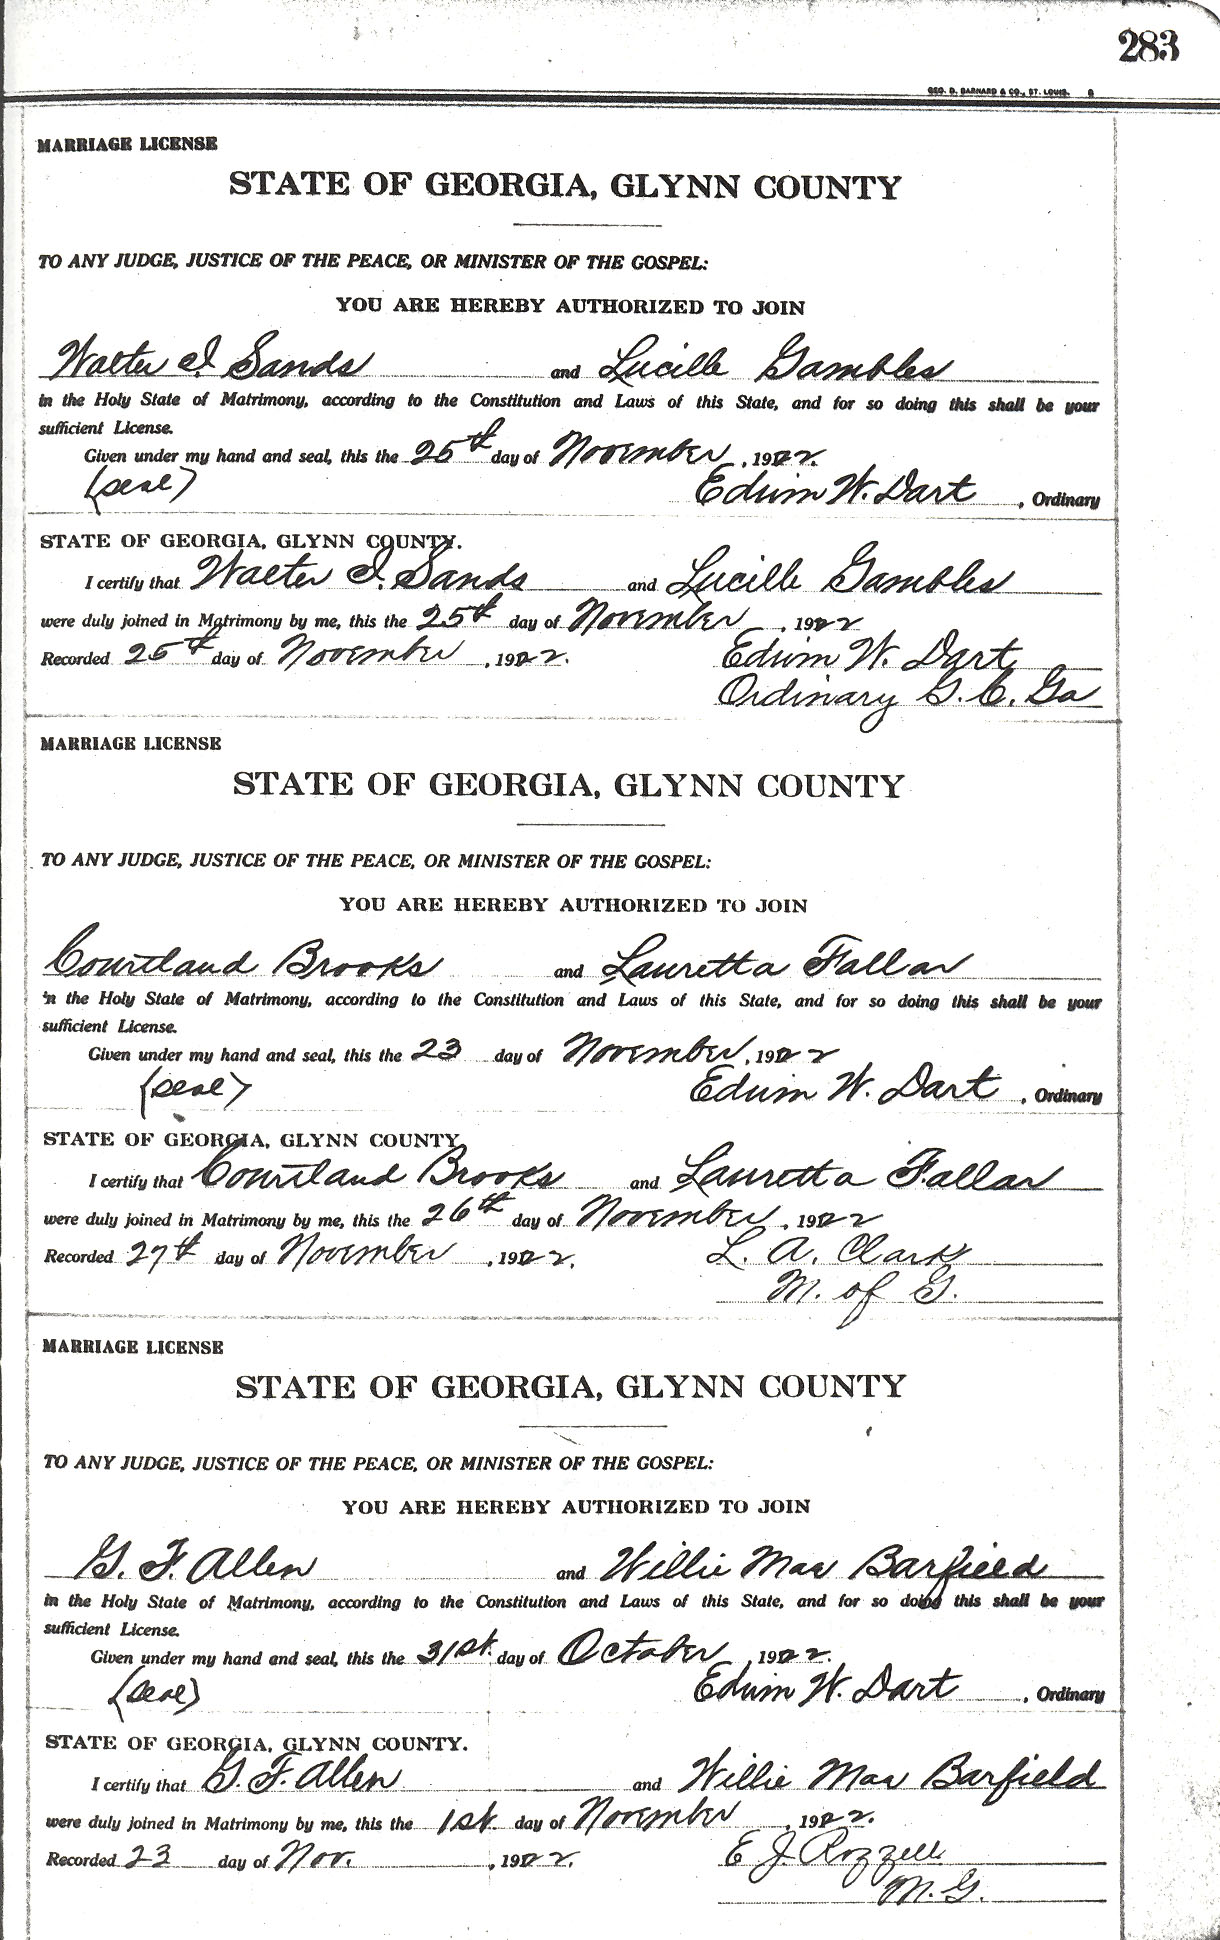 283
GEO. D. BARNARD & CO., ST. LOUIS.
MARRIAGE LICENSE
STATE OF GEORGIA, GLYNN COUNTY
TO ANY JUDGE, JUSTICE OF THE PEACE, OR MINISTER OF THE GOSPEL:
YOU ARE HEREBY AUTHORIZED TO JOIN
Walter I Sands and Lucille Gambles
in the Holy State of Matrimony, according to the Constitution and Laws of this State, and for so doing this shall be your
sufficient License.
Given under my hand and seal, this the 25th day of November, 1922.
(seal) Edwin W. Dart, Ordinary
STATE OF GEORGIA, GLYNN COUNTY.
I certify that Walter I. Sands and Lucille Gambles
were duly joined in Matrimony by me, this the 25th day of November, 1922
Recorded 25th day of November, 1922. Edwin W. Dart
Ordinary G. C. Ga
MARRIAGE LICENSE
STATE OF GEORGIA, GLYNN COUNTY
TO ANY JUDGE, JUSTICE OF THE PEACE, OR MINISTER OF THE GOSPEL:
YOU ARE HEREBY AUTHORIZED TO JOIN
Courtland Brooks and Lauretta Fallar
in the Holy State of Matrimony, according to the Constitution and Laws of this State, and for so doing this shall be your
sufficient License.
Given under my hand and seal, this the 23 day of November, 1922
(seal) Edwin W. Dart, Ordinary
STATE OF GEORGIA, GLYNN COUNTY.
I certify that Courtland Brooks and Lauretta Fallar
were duly joined in Matrimony by me, this the 26th day of November, 1922
Recorded 27th day of November, 1922. L. A. Clark
M. of G.
MARRIAGE LICENSE
STATE OF GEORGIA, GLYNN COUNTY
TO ANY JUDGE, JUSTICE OF THE PEACE, OR MINISTER OF THE GOSPEL:
YOU ARE HEREBY AUTHORIZED TO JOIN
G. F. Allen and Willie Mae Barfield
in the Holy State of Matrimony, according to the Constitution and Laws of this State, and for so doing this shall be your
sufficient License.
Given under my hand and seal, this the 31st. day of October, 1922.
(seal) Edwin W. Dart, Ordinary
STATE OF GEORGIA, GLYNN COUNTY.
I certify that G. F. Allen and Willie Mae Barfield
were duly joined in Matrimony by me, this the 1st. day of November, 1922.
Recorded 23 day of Nov., 1922. E J. Rozzell
M. G.